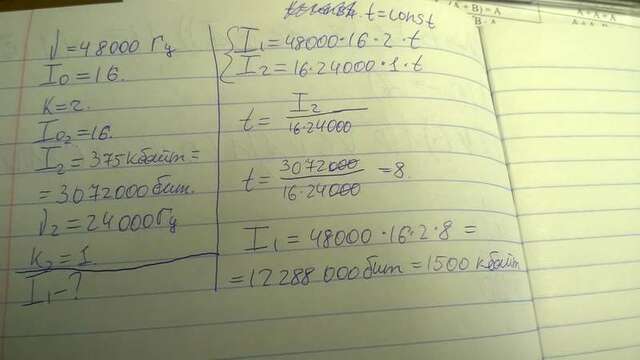 t=const
√=48000 Гц
I0=16.
K=2.
I02=16.
I2=375кбайт=
=3072000бит.
√2=24000Гц
K2=1.
I1-?
I1=48000·16·2·t
I2=16·24000·1·t
t= I2
16·24000
t= 3072000 =8.
16·24000
I1=48000·16·2·8=
=12288000бит=1500кбайт